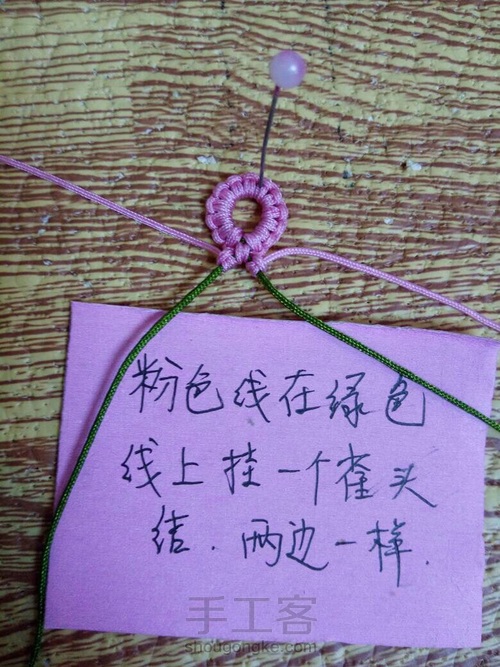 粉色线在绿色
线上挂一个雀头
结.两边一样.
手工客
shougongke.com